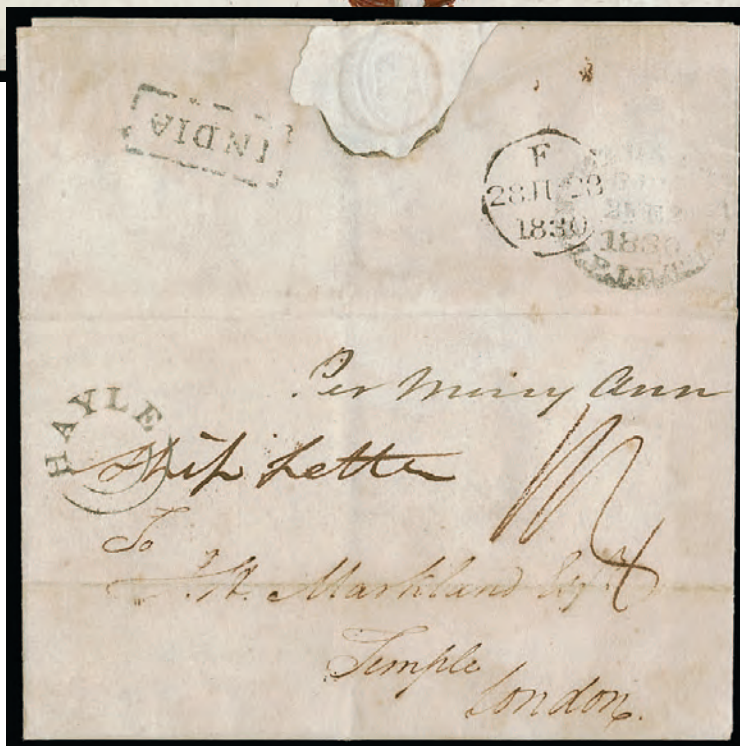 INDIA
F
28 JU 28
1830
1830
Per Mary Ann
HAYLE
Ship Letter
To
J. H. Markland Esqr
Temple
London.